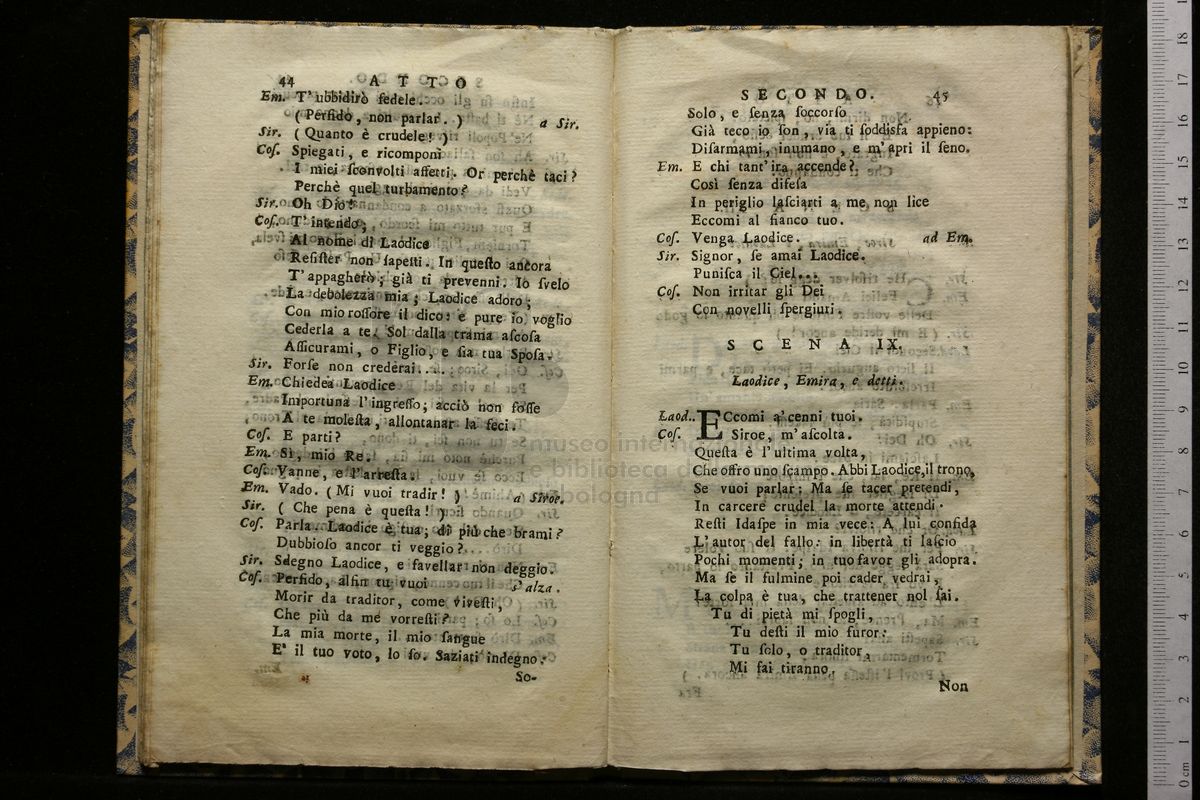 44 ATTO
Em. T'ubbidirò fedele.
(Perfido, non parlar.) a Sir.
Sir. (Quanto è crudele!)
Coſ. Spiegati, e ricomponi
I miei ſconvolti affetti. Or perchè taci?
Perchè quel turbamento?
Sir. Oh Dio!
Coſ. T'intendo;
Al nome di Laodice
Reſiſter non ſapeſti. In queſto ancora
T'appagherò; già ti prevenni. Io ſvelo
La debolezza mia; Laodice adoro;
Con mio roſſore il dico: e pure io voglio
Cederla a te. Sol dalla trama aſcoſa
Aſſicurami, o Figlio, e ſia tua Spoſa.
Sir. Forſe non crederai....
Em. Chiedea Laodice
Importuna l'ingreſſo; acciò non foſſe
A te moleſta, allontanar la feci.
Coſ. E parti?
Em. Sì, mio Re.
Coſ. Vanne, e l'arreſta.
Em. Vado. (Mi vuoi tradir!) a Siroe.
Sir. (Che pena è queſta!)
Coſ. Parla. Laodice è tua; di più che brami?
Dubbioſo ancor ti veggio?
Sir. Sdegno Laodice, e favellar non deggio.
Coſ. Perfido, alfin tu vuoi s'alza.
Morir da traditor, come viveſti,
Che più da me vorreſti?
La mia morte, il mio ſangue
E' il tuo voto, lo ſo. Saziati indegno:
So-
SECONDO. 45
Solo, e ſenza ſoccorſo
Già teco io ſon, via ti ſoddisfa appieno:
Diſarmami, inumano, e m'apri il ſeno.
Em. E chi tant'ira accende?
Così ſenza difeſa
In periglio laſciarti a me non lice
Eccomi al fianco tuo.
Coſ. Venga Laodice. ad Em.
Sir. Signor, ſe amai Laodice.
Puniſca il Ciel...
Coſ. Non irritar gli Dei
Con novelli ſpergiuri.
SCENA IX.
Laodice, Emira, e detti.
Laod. ECcomi a' cenni tuoi.
Coſ. Siroe, m'aſcolta.
Queſta è l'ultima volta,
Che offro uno ſcampo. Abbi Laodice, il trono,
Se vuoi parlar: Ma ſe tacer pretendi,
In carcere crudel la morte attendi.
Reſti Idaſpe in mia vece: A lui confida
L'autor del fallo: in libertà ti laſcio
Pochi momenti; in tuo favor gli adopra.
Ma ſe il fulmine poi cader vedrai,
La colpa è tua, che trattener nol ſai.
Tu di pietà mi ſpogli,
Tu deſti il mio furor:
Tu ſolo, o traditor,
Mi fai tiranno.
Non
museo internazionale
e biblioteca d
bologna